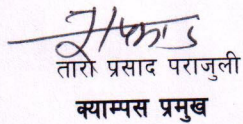 तारा प्रसाद पराजुली
क्याम्पस प्रमुख